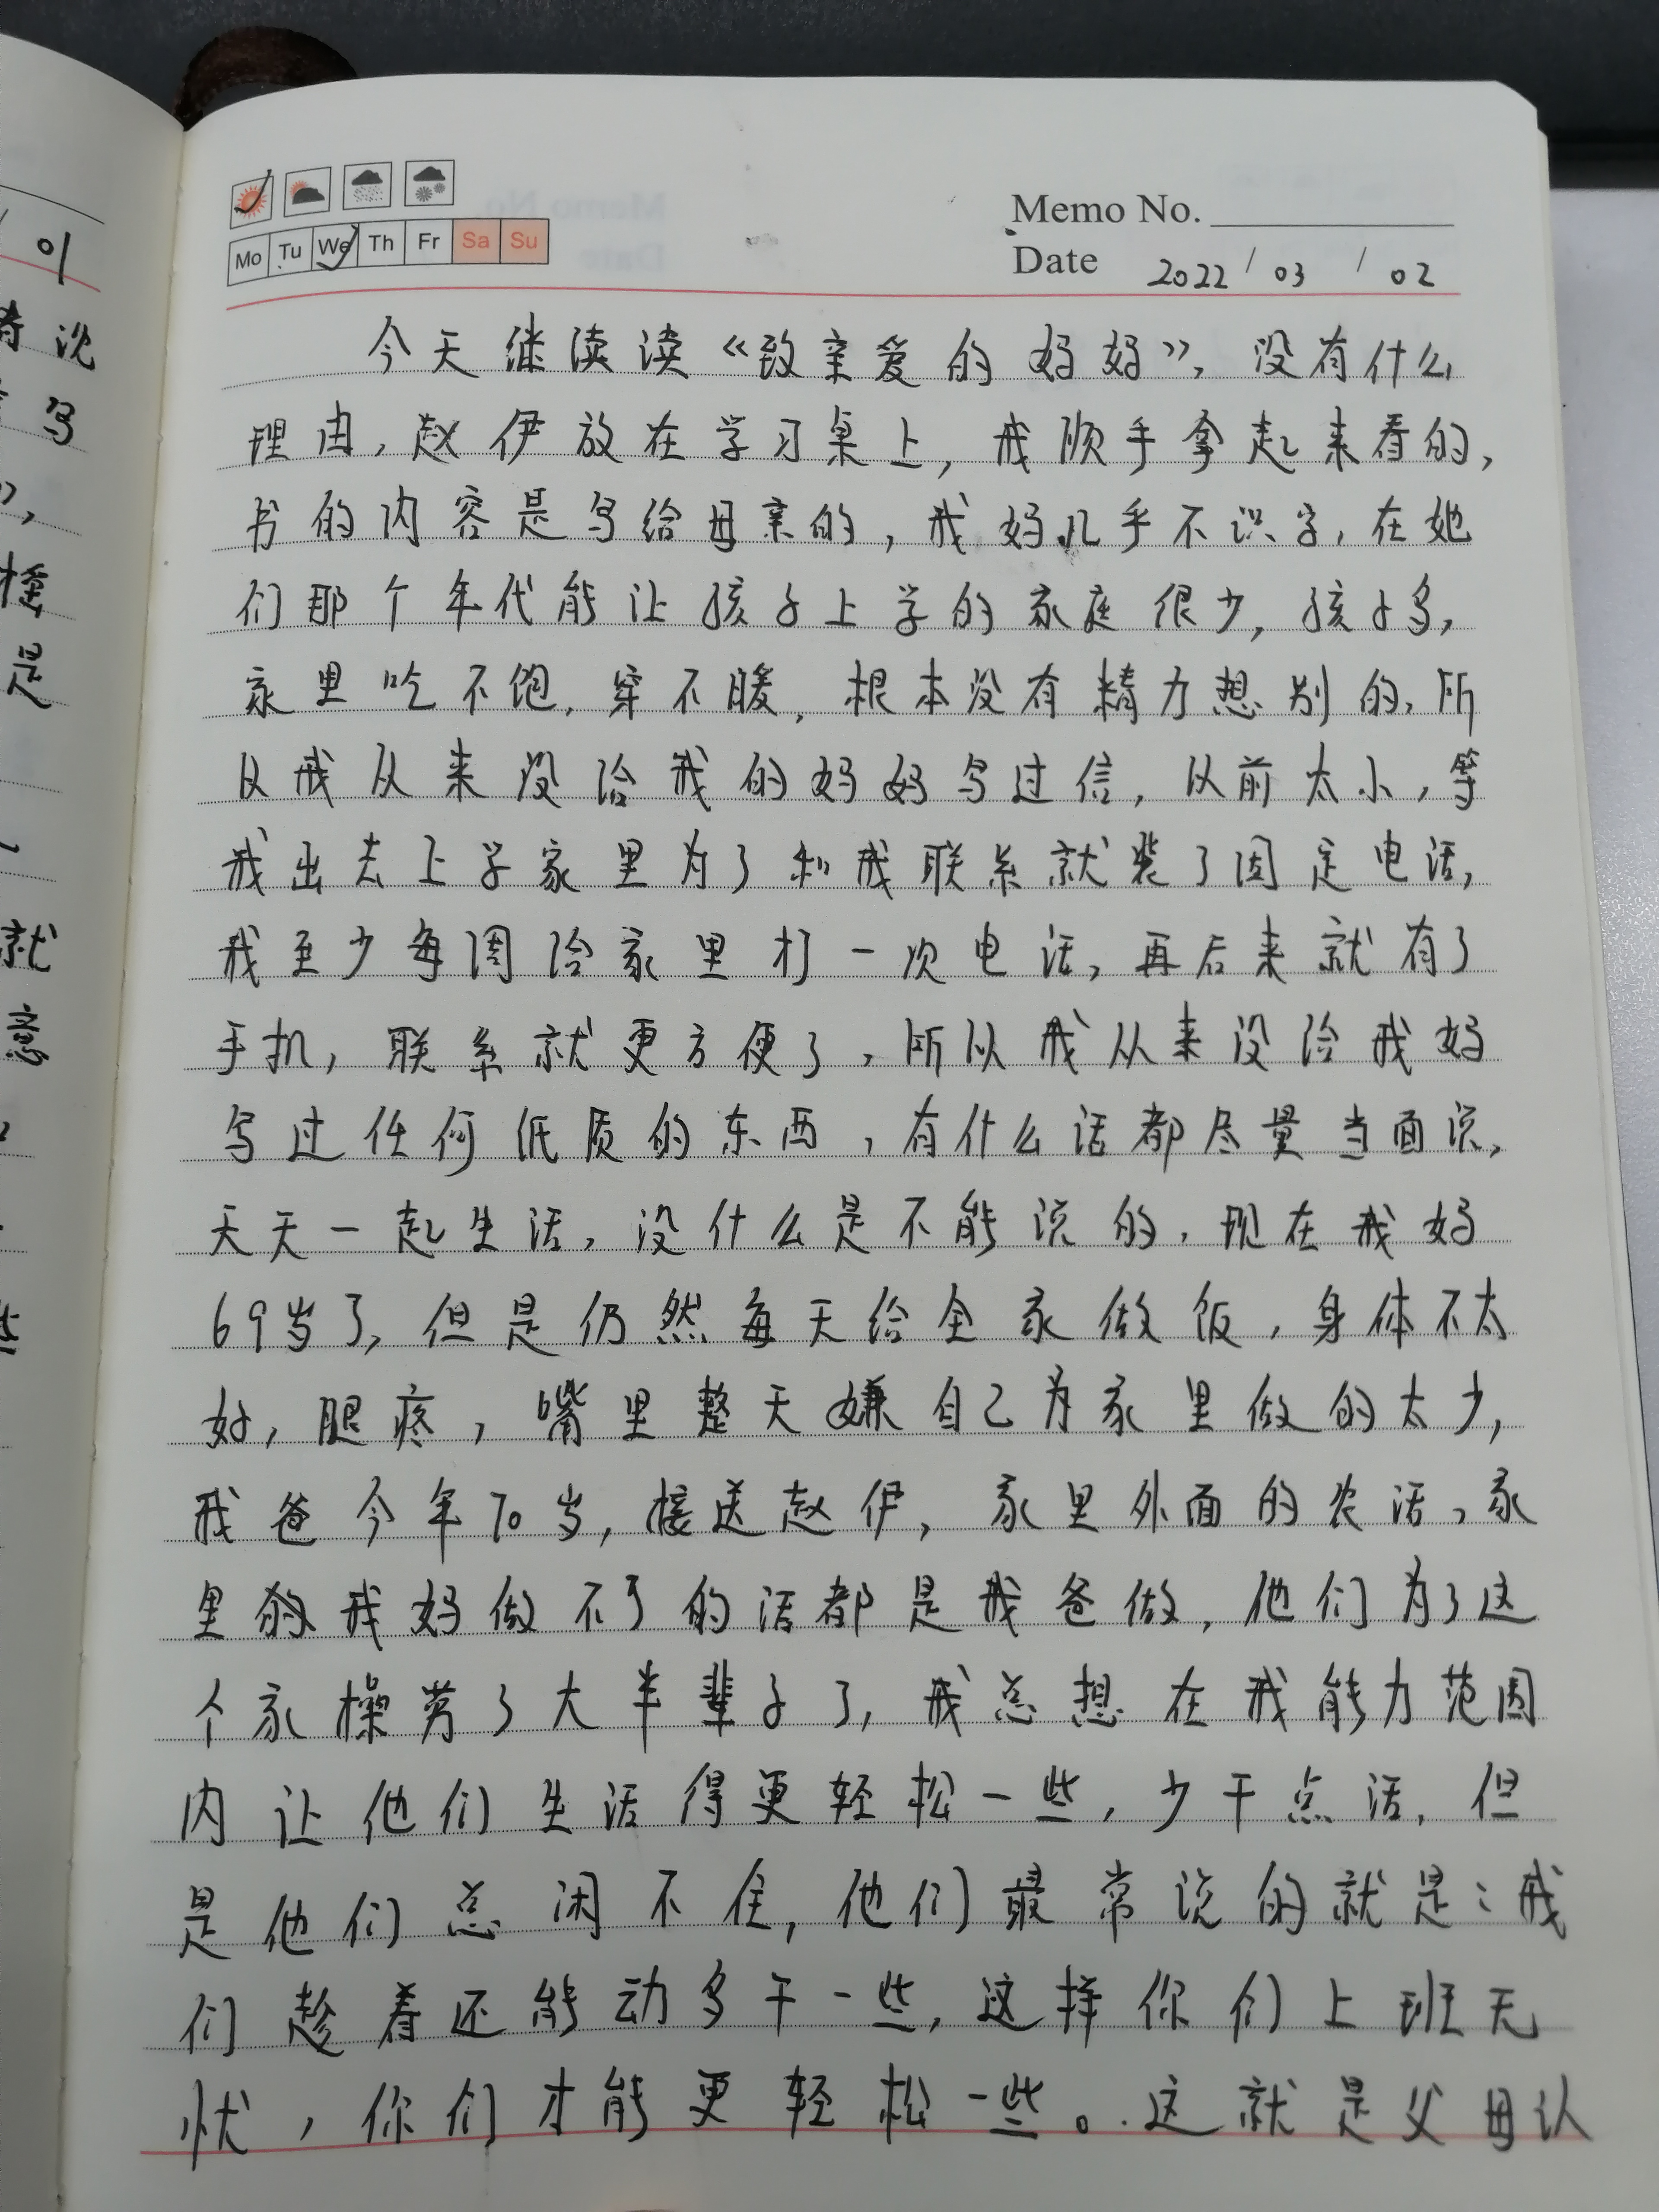 Memo No.
Mo Tu We Th Fr Sa Su
Date 2022 / 03 / 02
今天继续读《致亲爱的妈妈》,没有什么
理由,赵伊放在学习桌上,我顺手拿起来看的,
书的内容是写给母亲的,我妈几乎不识字,在她
们那个年代能让孩子上学的家庭很少,孩子多,
家里吃不饱,穿不暖,根本没有精力想别的,所
以我从来没给我的妈妈写过信,以前太小,等
我出去上学家里为了和我联系就装了固定电话,
我至少每周给家里打一次电话,再后来就有了
手机,联系就更方便了,所以我从来没给我妈
写过任何低质的东西,有什么话都尽量当面说,
天天一起生活,没什么是不能说的,现在我妈
69岁了,但是仍然每天给全家做饭,身体不太
好,腿疼,嘴里整天嫌自己为家里做的太少,
我爸今年70岁,接送赵伊,家里外面的农活、家
里的我妈做不了的活都是我爸做,他们为了这
个家操劳了大半辈子了,我总想在我能力范围
内让他们生活得更轻松一些,少干点活,但
是他们总闲不住,他们最常说的就是:我
们趁着还能动多干一些,这样你们上班无
忧,你们才能更轻松一些。这就是父母认
01
诗说
写
",
是
就
意
些